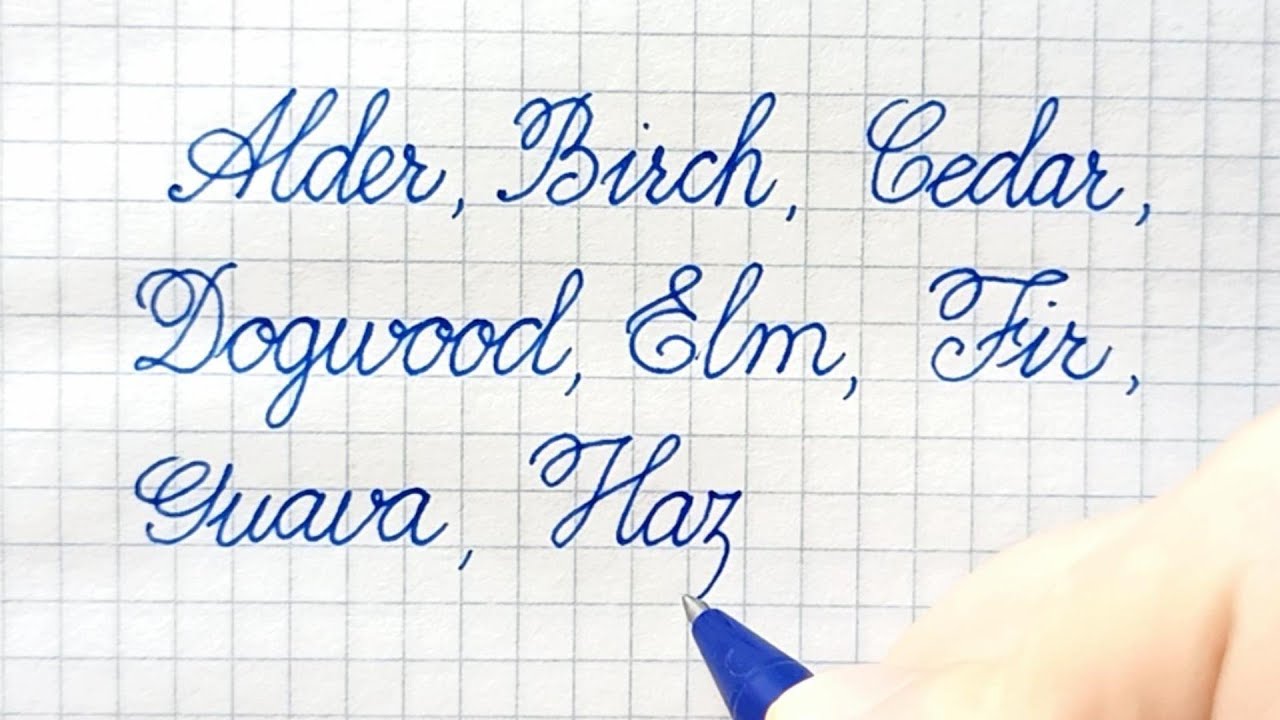 Alder, Birch, Cedar,
Dogwood, Elm, Fir,
Guava, Haz